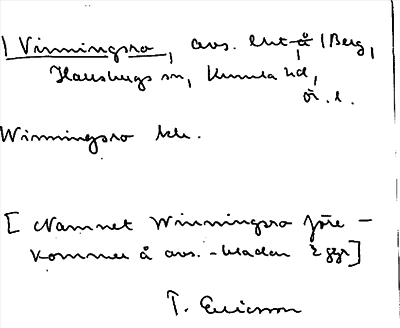 | Vinningsro, avs. Ent å 1 Berg,
Hausbergs sn, Kumla hd,
Ör. l.
Winningsro kk.
[ Namnet Winningsro före-
kommer å avs.-bladen 2 ggr]
T. Ericsson